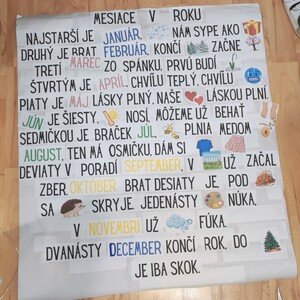 MESIACE V ROKU
NAJSTARŠÍ JE JANUÁR, NÁM SYPE AKO
DRUHÝ JE BRAT FEBRUÁR, KONČÍ ZAČNE
TRETÍ MAREC ZO SPÁNKU, PRVÚ BUDÍ
ŠTVRTÝM JE APRÍL, CHVÍĽU TEPLÝ, CHVÍĽU
PIATY JE MÁJ LÁSKY PLNÝ, NAŠE LÁSKOU PLNÍ.
JÚN JE ŠIESTY, NOSÍ, MÔŽEME UŽ BEHAŤ
SEDMIČKOU JE BRAČEK JÚL, PLNIA MEDOM
AUGUST, TEN MÁ OSMIČKU, DÁM SI
DEVIATY V PORADÍ SEPTEMBER, V UŽ ZAČAL
ZBER. OKTÓBER BRAT DESIATY JE POD
SA SKRYJE. JEDENÁSTY NÚKA,
V NOVEMBRI UŽ FÚKA.
DVANÁSTY DECEMBER KONČÍ ROK, DO
JE IBA SKOK.